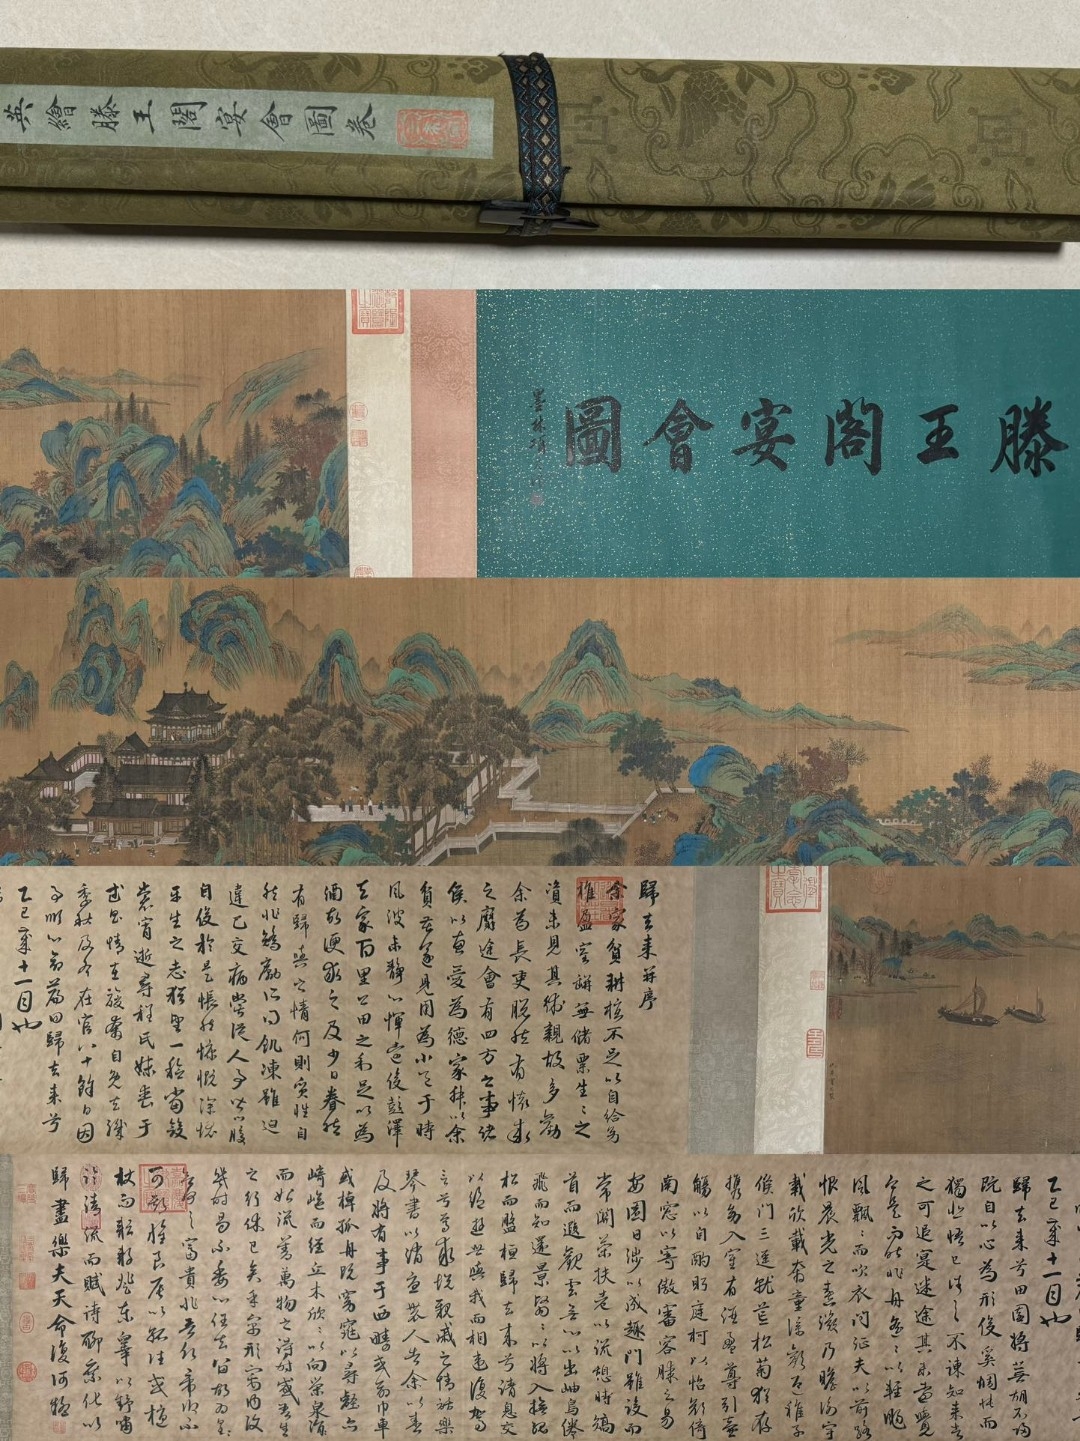 英繪滕王閣宴會圖卷
滕王閣宴會圖
墨林項
歸去来并序
余家貧耕植不足以自給幼
稚盈室缾無儲粟生生之
資未見其術親故多勸
余為長吏脫然有懷求
之靡途會有四方之事諸
侯以惠愛為德家叔以余
貧苦遂見用為小邑于時
風波未靜心憚遠役彭澤
去家百里公田之利足以為
酒故便求之及少日眷然
有歸與之情何則質性自
然非矯勵所得飢凍雖迫
違己交病嘗從人事皆口腹
自役於是悵然慷慨深愧
平生之志猶望一稔當斂
裳宵逝尋程氏妹喪于
武昌情在駿奔自免去職
季秋及冬在官八十餘日因
事順心命篇曰歸去来兮
乙巳歲十一月也
乙巳歲十一月也
歸去来兮田園將蕪胡不歸
既自以心為形役奚惆悵而
獨悲悟已往之不諫知来者
之可追寔迷途其未遠覺
今是而昨非舟遙遙以輕颺
風飄飄而吹衣問征夫以前路
恨晨光之熹微乃瞻衡宇
載欣載奔童僕歡迎稚子
候門三逕就荒松菊猶存
攜幼入室有酒盈尊引壺
觴以自酌眄庭柯以怡顏倚
南窓以寄傲審容膝之易
安園日涉以成趣門雖設而
常關策扶老以流憩時矯
首而遐觀雲無心以出岫鳥倦
飛而知還景翳翳以將入撫孤
松而盤桓歸去来兮請息交
以絕遊世與我而相違復駕
言兮焉求悅親戚之情話樂
琴書以消憂農人告余以春
及將有事于西疇或命巾車
或棹孤舟既窈窕以尋壑亦
崎嶇而經丘木欣欣以向榮泉涓
涓而始流善萬物之得時感吾生
之行休已矣乎寓形宇內復
幾時曷不委心任去留胡為遑
遑欲何之富貴非吾願帝鄉不
可期懷良辰以孤往或植
杖而耘耔登東皋以舒嘯
臨清流而賦詩聊乘化以
歸盡樂夫天命復何疑